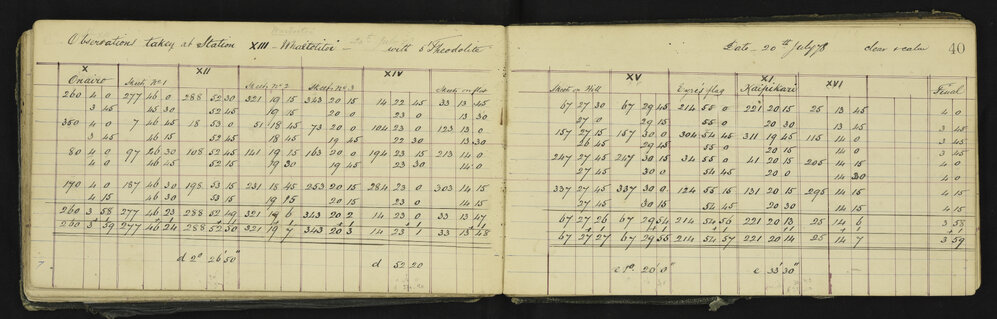 Observations taken at Station XIII – Whaitoitoi – with 5 Theodolite Date – 20th July 78 clear & calm 40
X XII XIV XV XI XVI
Onairo Sketch No 1 Sketch No 2 Sketch No 3 Sketch on flat Shoot on Hill flag Kaipikari Final
260 4 0 277 46 0 288 52 30 321 19 15 343 20 15 14 22 45 33 13 45 67 27 30 67 29 45 214 55 0 221 20 15 25 13 45 4 0
3 45 45 30 52 45 19 15 20 0 23 0 13 30 27 0 29 15 55 0 20 30 13 45 3 45
350 4 0 7 46 45 18 53 0 51 18 45 73 20 0 104 23 0 123 13 0 157 27 15 157 30 0 304 54 45 311 19 45 115 14 0 4 0
3 45 46 15 52 45 18 45 19 45 22 30 13 30 26 45 29 45 55 0 20 15 14 0 3 45
80 4 0 97 46 30 108 52 45 141 19 15 163 20 0 194 23 15 213 14 0 247 27 45 247 30 15 34 55 0 41 20 15 205 14 15 4 0
4 0 46 45 52 15 19 30 19 45 23 30 14 0 27 45 30 0 54 45 20 0 14 30 4 0
170 4 0 187 46 30 198 53 15 231 18 45 253 20 15 284 23 0 303 14 15 337 27 45 337 30 0 124 55 15 131 20 15 295 14 15 4 15
4 15 46 30 53 15 19 15 20 15 23 0 14 15 27 45 30 15 54 45 20 30 14 15 4 15
260 3 58 277 46 23 288 52 49 321 19 6 343 20 2 14 23 0 33 13 47 67 27 26 67 29 54 214 54 56 221 20 13 25 14 6 3 58
260 3 59 277 46 24 288 52 50 321 19 7 343 20 3 14 23 1 33 13 48 67 27 27 67 29 55 214 54 57 221 20 14 25 14 7 3 59
d 2° 26' 50" d 52 20 c 1° 20' 0" c 33' 30"